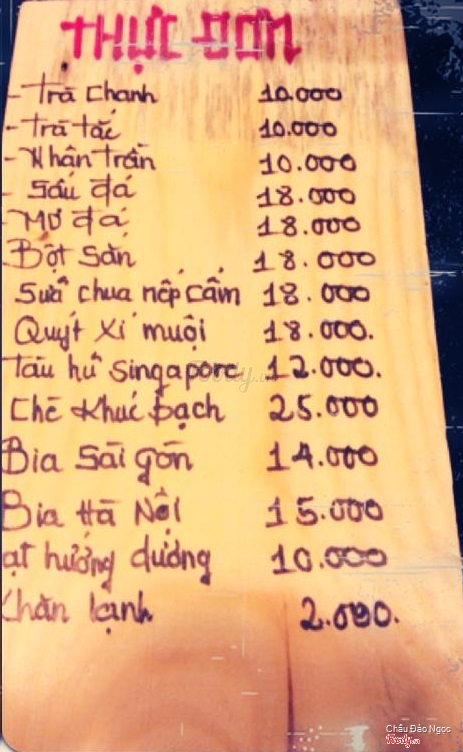 THỰC ĐƠN
- Trà chanh 10.000
- Trà tắc 10.000
- Nhân trần 10.000
- Sấu đá 18.000
- Mơ đá 18.000
Bột sắn 18.000
Sữa chua nếp cẩm 18.000
Quýt xí muội 18.000.
Tàu hũ Singapore 12.000.
Chè khúc bạch 25.000
Bia Sài gòn 14.000
Bia Hà Nội 15.000
ạt hướng dương 10.000
Khăn lạnh 2.000.
Foody.vn
Châu Đào Ngọc
Foody.vn